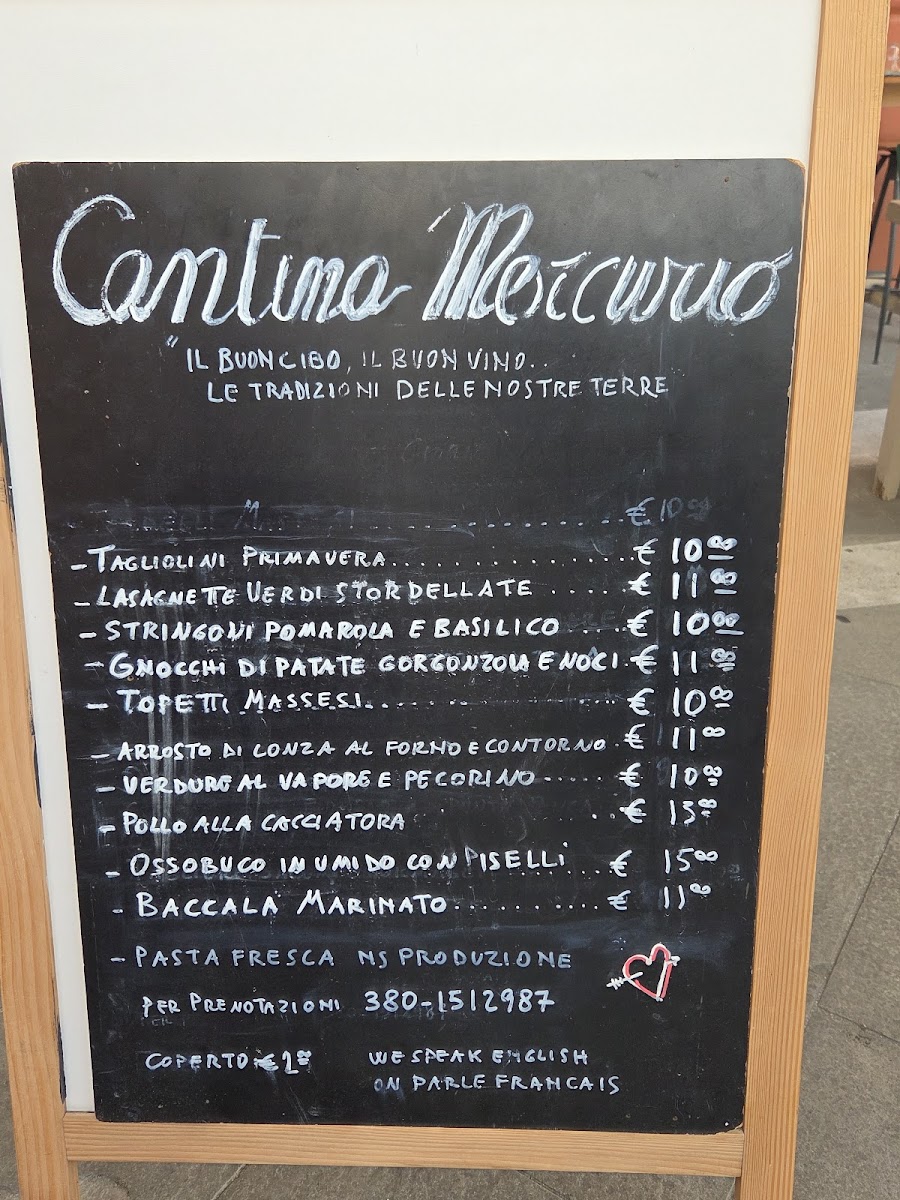 Cantina Mercurio
"IL BUON CIBO, IL BUON VINO..
LE TRADIZIONI DELLE NOSTRE TERRE
€ 10.00
- TAGLIOLINI PRIMAVERA............... € 10.00
- LASAGNETTE VERDI STORDELLATE ..... € 11.00
- STRINGONI POMAROLA E BASILICO ... € 10.00
- GNOCCHI DI PATATE GORGONZOLA E NOCI . € 11.00
- TOPETTI MASSESI.................. € 10.00
- ARROSTO DI LONZA AL FORNO E CONTORNO . € 11.00
- VERDURE AL VAPORE E PECORINO ..... € 10.00
- POLLO ALLA CACCIATORA ... € 13.00
- OSSOBUCO IN UMIDO CON PISELLI € 15.00
- BACCALA' MARINATO............ € 11.00
- PASTA FRESCA NS PRODUZIONE
PER PRENOTAZIONI 380-1512987
COPERTO € 2.00 WE SPEAK ENGLISH
ON PARLE FRANCAIS